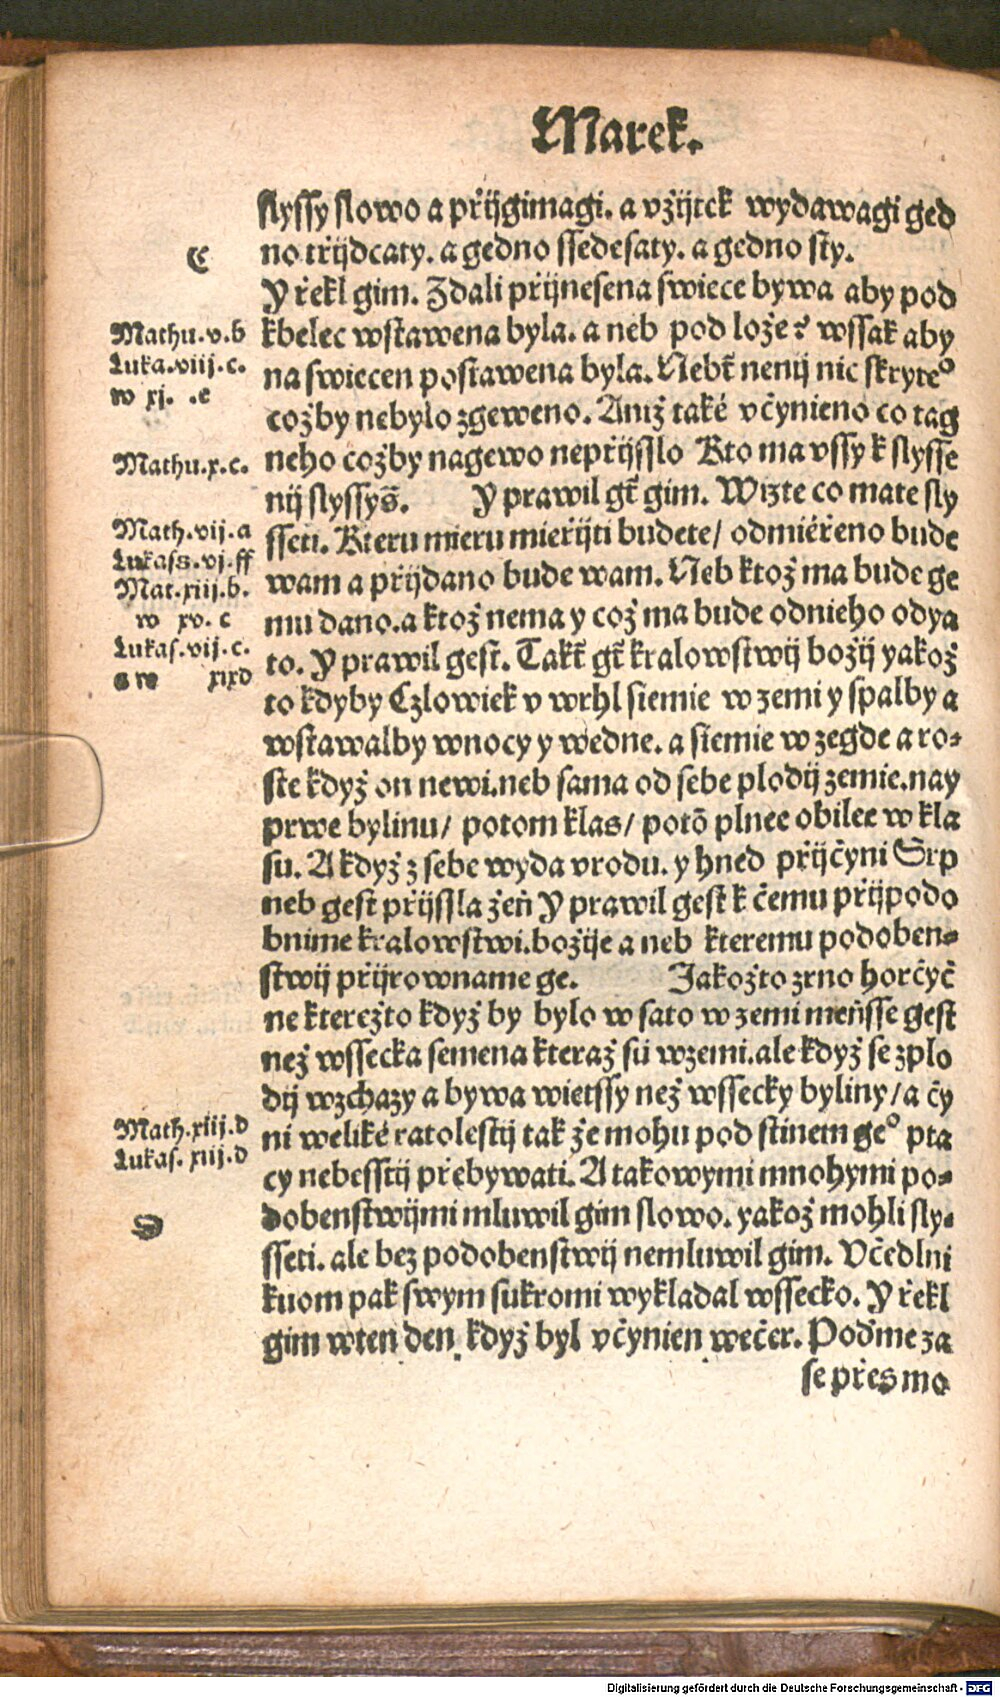 Marek.
slyssy slowo a přijgimagi. a vžijtek wydawagi ged
no třijdcaty. a gedno ssedesaty. a gedno sty.
C
Y řekl gim. Zdali přijnesena swiece bywa aby pod
kbelec wstawena byla. a neb pod lože? wssak aby
na swiecen postawena byla. Nebt̃ nenij nic skryteº
cožby nebylo zgeweno. Aniž také včynieno co tag
neho cožby nagewo nepřijsslo Kto ma vssy k slysse
nij slyssyš. Y prawil gt̃ gim. Wizte co mate sly
sseti. Kteru mieru mieřijti budete/ odmiéřeno bude
wam a přijdano bude wam. Neb ktož ma bude ge
mu dano. a ktož nema y což ma bude odnieho odya
to. Y prawil gest̃. Takt̃ gt̃ kralowstwij božij yakož
to kdyby Czlowiek v wrhl siemie w zemi y spalby a
wstawalby wnocy y wedne. a siemie w zegde a ro-
ste když on newi. neb sama od sebe plodij zemie. nay
prwe bylinu/ potom klas/ potõ plnee obilee w kla
su. A když z sebe wyda vrodu. y hned přijčyni Srp
neb gest přijssla žeň Y prawil gest k čemu přijpodo
bnime kralowstwi. božije a neb kteremu podoben-
stwij přijrowname ge. Jakožto zrno horčyč
ne kterežto když by bylo w sato w zemi meňsse gest
než wssecka semena kteraž sú wzemi. ale když se zplo
dij wzchazy a bywa wietssy než wssecky byliny/ a čy
ni weliké ratolestij tak že mohu pod stinem geº pta
cy nebesstij přebywati. A takowymi mnohymi po-
dobenstwijmi mluwil gim slowo. yakož mohli sly-
sseti. ale bez podobenstwij nemluwil gim. Včedlni
kuom pak swym sukromi wykladal wssecko. Y řekl
gim wten den když byl včynien wečer. Poďme za
se přes mo
Mathu. v. b
Luka. viij. c.
w xj. .e
Mathu. x. c.
Math. vij. a
Lukass. vj. ff
Mat. xiij. b.
w xv. c
Lukas. vij. c.
xixd
Math. xiij. d
Lukas. xiij. d
D
Digitalisierung gefördert durch die Deutsche Forschungsgemeinschaft - DFG